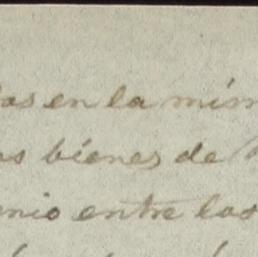 as en la mism
os bienes de
enio entre los